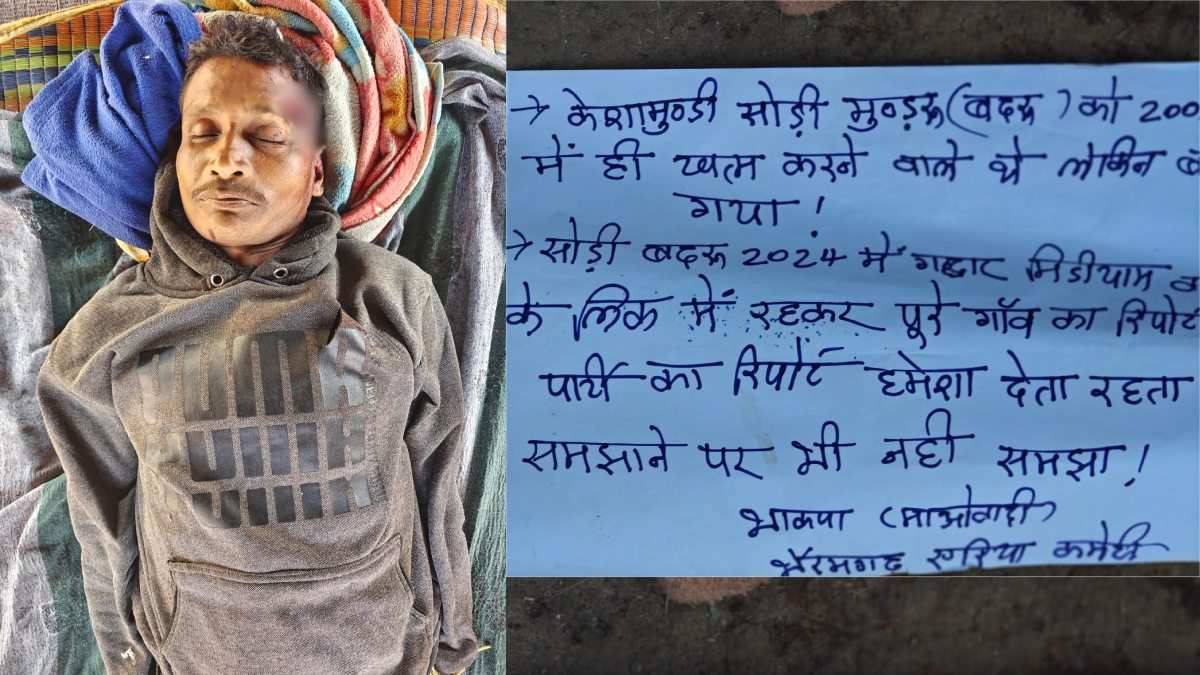 → केशामुण्डी सोड़ी मुण्ड़रू (बदरू) को 200
में ही खत्म करने वाले थे लेकिन
गया!
→ सोड़ी बदरू 2024 में गद्दार मिडीयाम
के लिंक में रहकर पूरे गाँव का रिपोर्ट
पार्टी का रिपोर्ट हमेशा देता रहता
समझाने पर भी नही समझा!
भाकपा (माओवादी)
भैरमगढ़ एरिया कमेटी